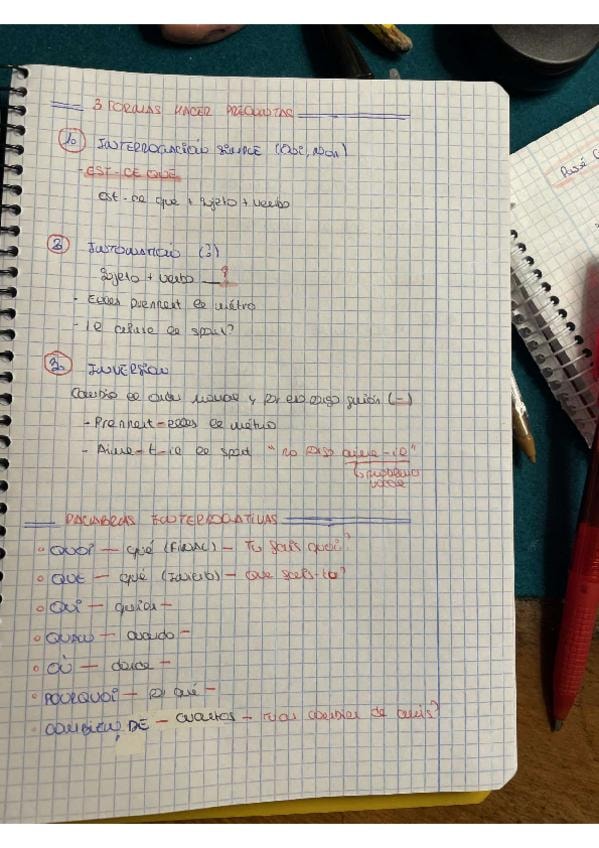 3 FORMAS HACER PREGUNTAS
1. INTERROGACIÓN SIMPLE (OUI, NON)
- EST-CE QUE
est-ce que + sujeto + verbo
2. INTONATION (?)
Sujeto + verbo ?
- Elles prennent le métro
- il aime le sport?
3. INVERSION
Cambio el orden y por eso pongo guión (-)
- Prennent-elles le métro
- Aime-t-il le sport "no pongo aime-il"
vocal
PALABRAS INTERROGATIVAS
• QUOI — qué (FINAL) — Tu sais quoi?
• QUE — qué (Inicio) — Que sais-tu?
• QUI — quien —
• QUAND — cuando —
• OÙ — donde —
• POURQUOI — por qué —
• COMBIEN DE — cuantos — Tu as combien de amis?